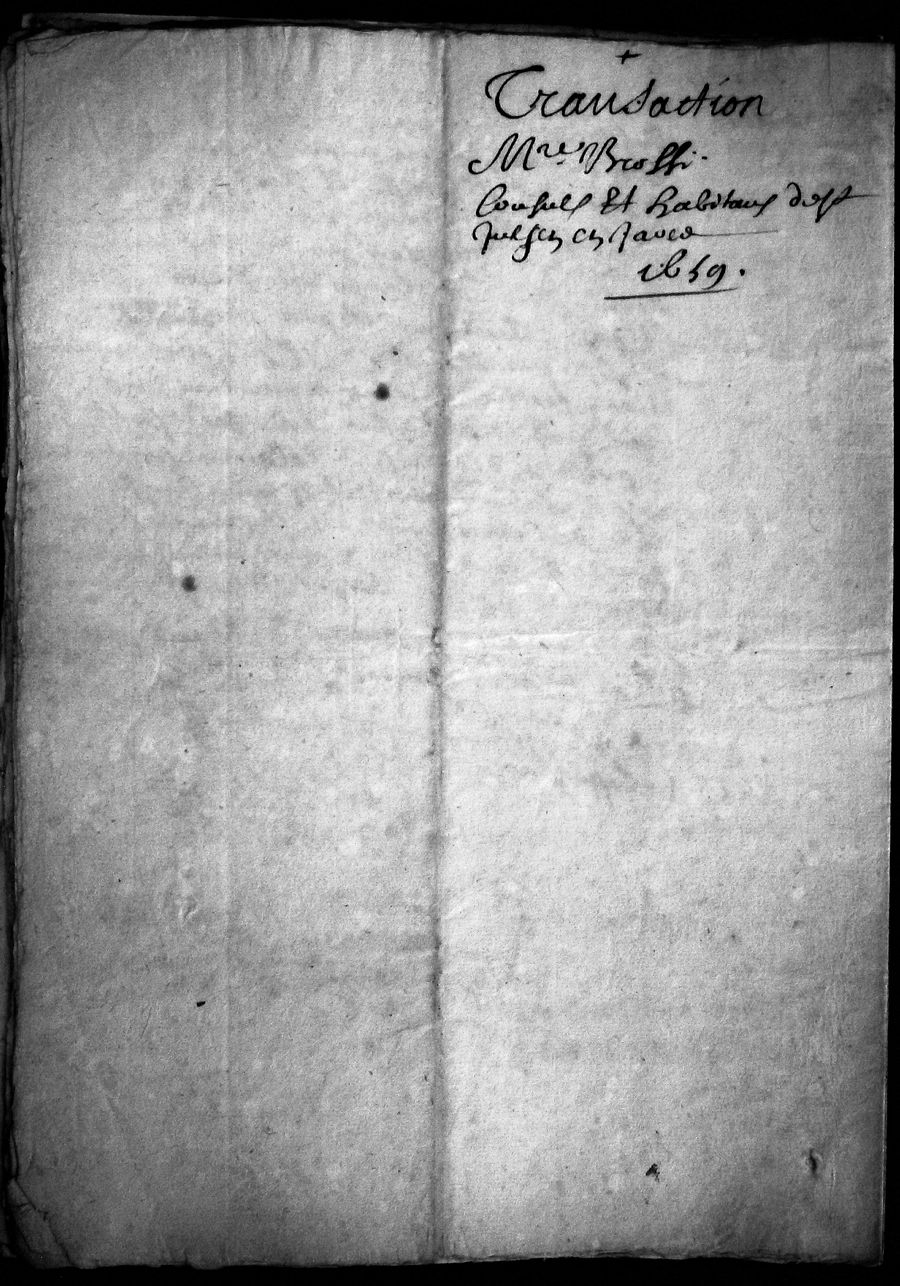 +
Transaction
Mres Brossi.
Consuls Et habitans de st
Julhen en Jares
1659.